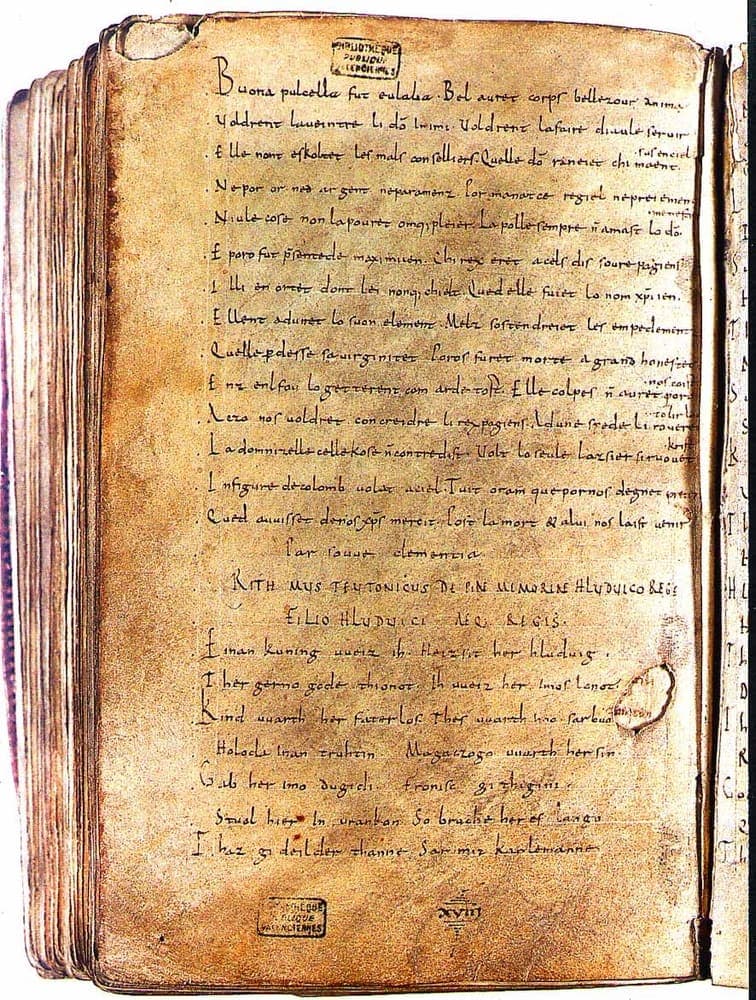 BIBLIOTHEQUE
PUBLIQUE
VALENCIENNES
Buona pulcella fut eulalia. Bel auret corps bellezour anima
Voldrent laveintre li dō inimi. Voldrent lafaire diaule servir
Elle nont eskoltet les mals conselliers. Quelle dō raneiet chi maent
sus en ciel
Ne por or ned argent neparamenz. Por manatce regiel nepreiemen
Niule cose non lapouret omqi pleier. La polle sempre n̄ amast lo dō
menestier
E poro fut p̄sentede maximiien. Chi rex eret a cels dis soure pagiens
Illi enortet dont lei nonqi chielt. Qued elle fuiet lo nom xp̄iien.
Ellent adunet lo suon element. Melz sostendreiet les empedementz
Quelle p̱desse sa virginitet. Poros furet morte a grand honestet
Enz enl fou lo getterent com arde tost. Elle colpes n̄ auret por
nos coist
A czo nos voldret concreidre li rex pagiens. Ad une spede li roveret
tolir lo
La domnizelle celle kose n̄ contredist. Volt lo seule lazsier si ruovet
krist
In figure de colomb volat a ciel. Tuit oram que por nos degnet preier
Qued auuisset de nos xp̄s mercit. Post la mort & a lui nos laist venir
Par souue clementia
RITHMUS TEUTONICUS DE PIAE MEMORIAE HLUDUICO REGE
FILIO HLUDUICI AEQ; REGIS.
Einan kuning uueiz ih. Heizsit her hluduig.
Ther gerno gode thionot. Ih uueiz her imos lonot.
Kind uuarth her faterlos. Thes uuarth imo sar buoz
Holoda inan truhtin Magaczogo uuarth her sin.
Gab her imo dugidi. Fronisc githigini.
Stual hier in urankon. So bruche her es lango
Thaz gideilder thanne. Sar mit karlemanne
BIBLIOTHEQUE
PUBLIQUE
VALENCIENNES
XVIII